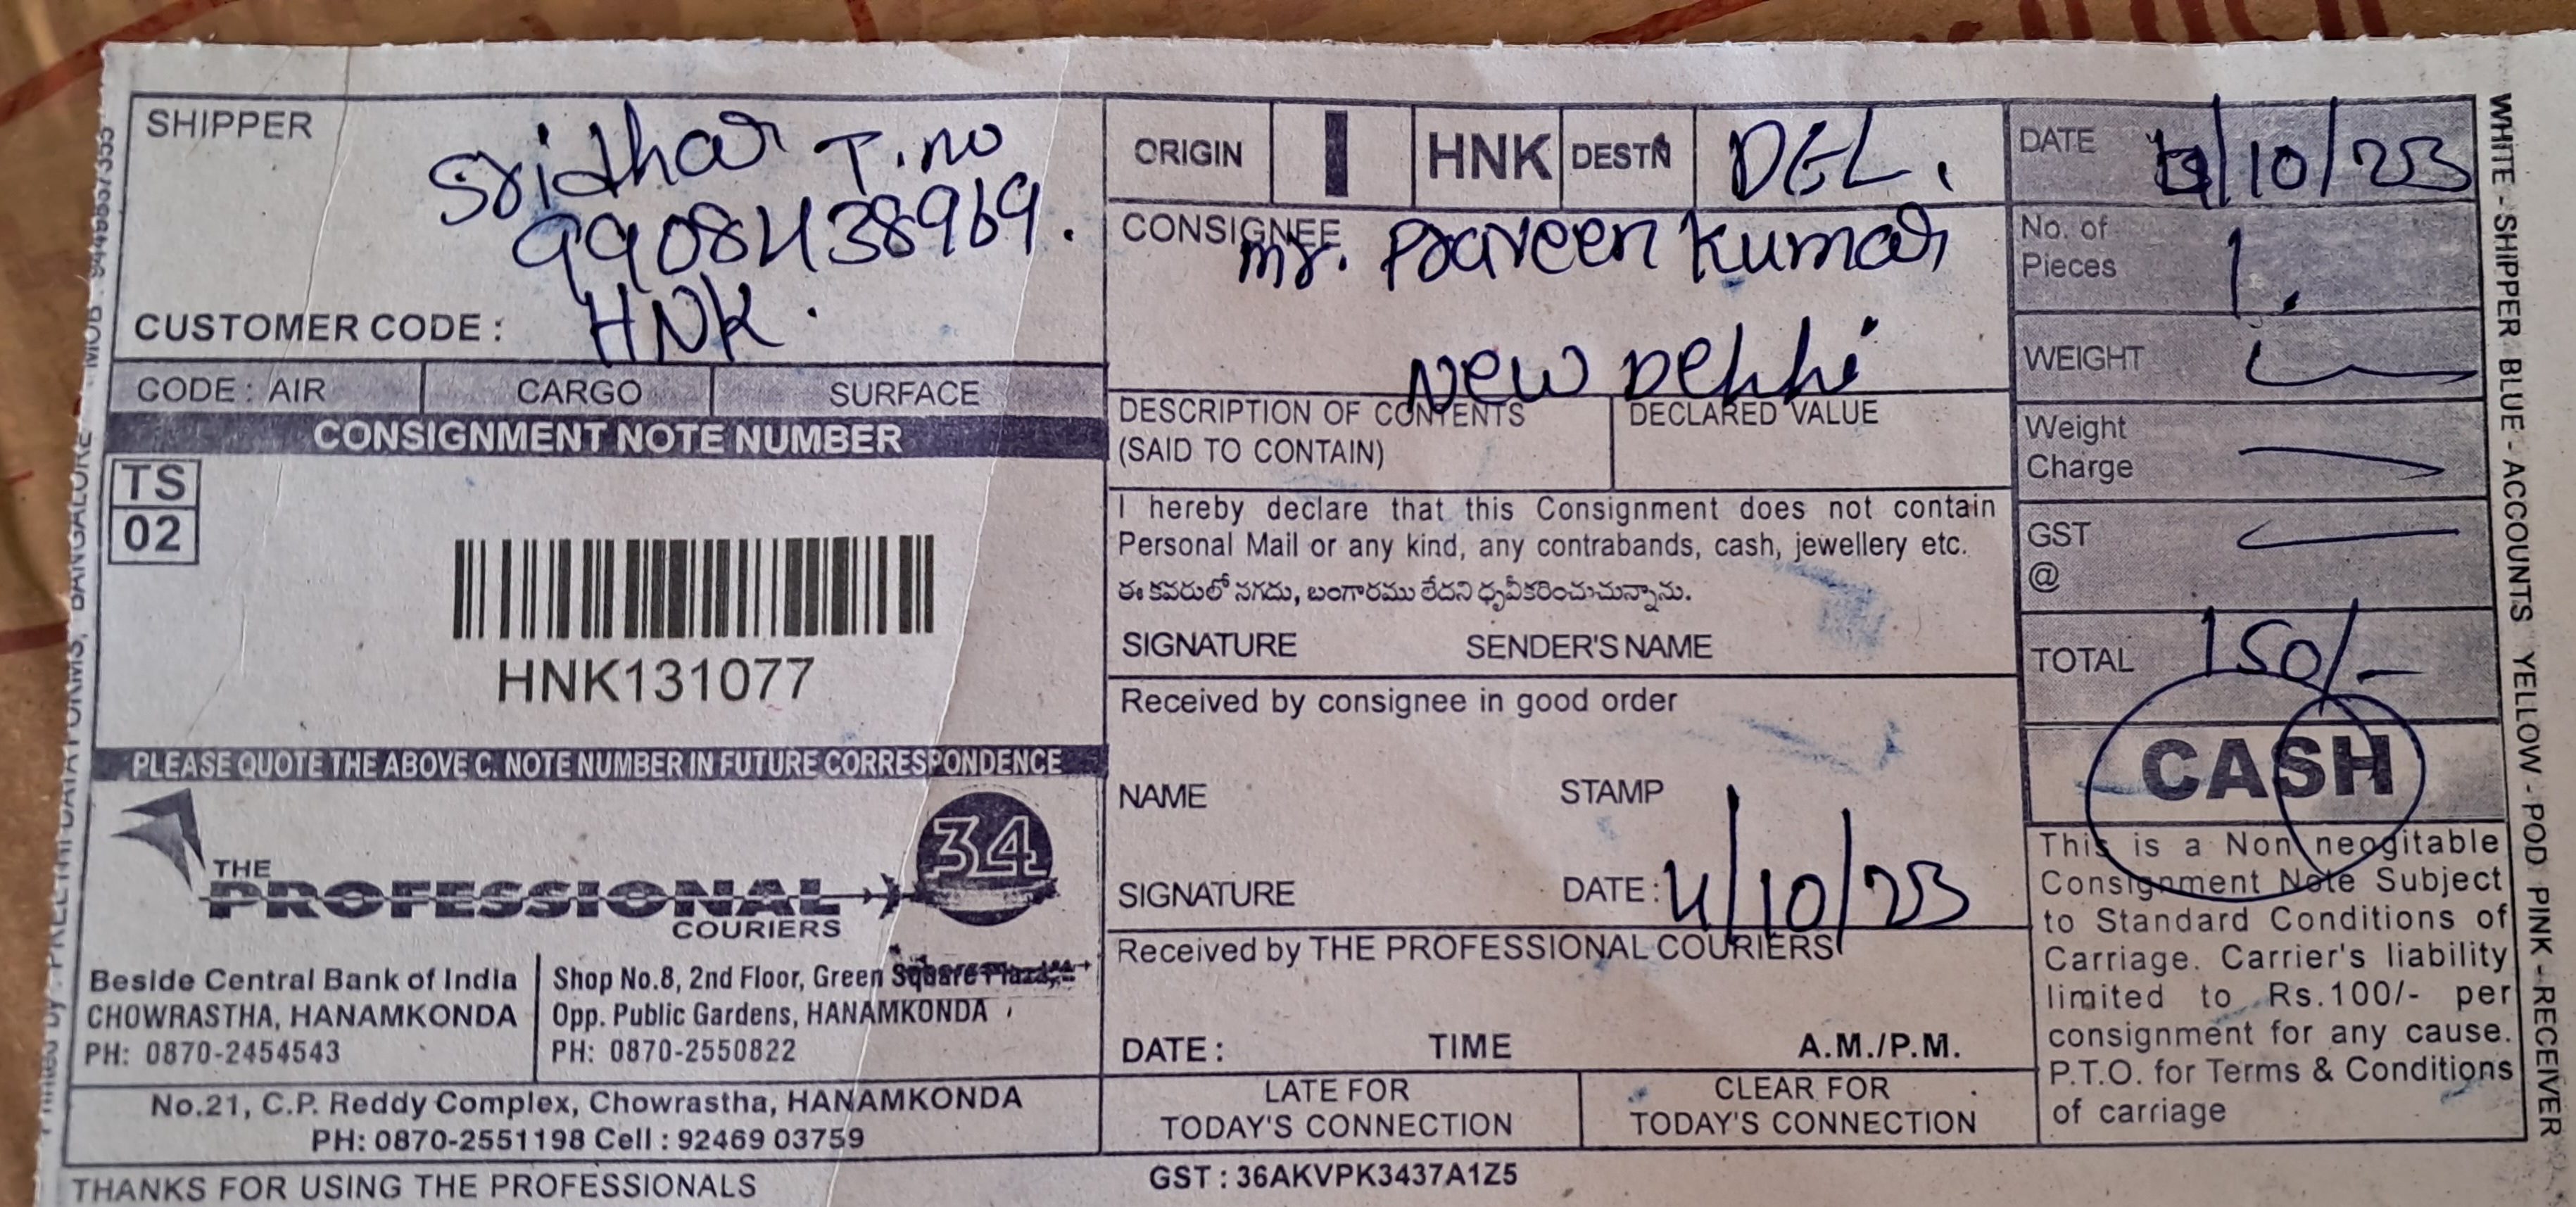 SHIPPER
Sridhar T.no
9908438969.
CUSTOMER CODE : HNK.
CODE : AIR CARGO SURFACE
CONSIGNMENT NOTE NUMBER
TS
02
HNK131077
PLEASE QUOTE THE ABOVE C. NOTE NUMBER IN FUTURE CORRESPONDENCE
THE
PROFESSIONAL
COURIERS
34
Beside Central Bank of India
CHOWRASTHA, HANAMKONDA
PH: 0870-2454543
Shop No.8, 2nd Floor, Green Square Plaza,
Opp. Public Gardens, HANAMKONDA
PH: 0870-2550822
No.21, C.P. Reddy Complex, Chowrastha, HANAMKONDA
PH: 0870-2551198 Cell : 92469 03759
THANKS FOR USING THE PROFESSIONALS
ORIGIN I HNK DESTN DEL.
CONSIGNEE
Mr. Praveen Kumar
New Delhi
DESCRIPTION OF CONTENTS
(SAID TO CONTAIN)
DECLARED VALUE
I hereby declare that this Consignment does not contain
Personal Mail or any kind, any contrabands, cash, jewellery etc.
ఈ కవరులో నగదు, బంగారము లేదని ధృవీకరించుచున్నాను.
SIGNATURE SENDER'S NAME
Received by consignee in good order
NAME STAMP
SIGNATURE DATE : 4/10/23
Received by THE PROFESSIONAL COURIERS
DATE : TIME A.M./P.M.
LATE FOR
TODAY'S CONNECTION
CLEAR FOR
TODAY'S CONNECTION
GST : 36AKVPK3437A1Z5
DATE 4/10/23
No. of
Pieces 1.
WEIGHT
Weight
Charge
GST
@
TOTAL 150/-
CASH
This is a Non neogitable
Consignment Note Subject
to Standard Conditions of
Carriage. Carrier's liability
limited to Rs.100/- per
consignment for any cause.
P.T.O. for Terms & Conditions
of carriage
WHITE - SHIPPER BLUE - ACCOUNTS YELLOW - POD PINK - RECEIVER